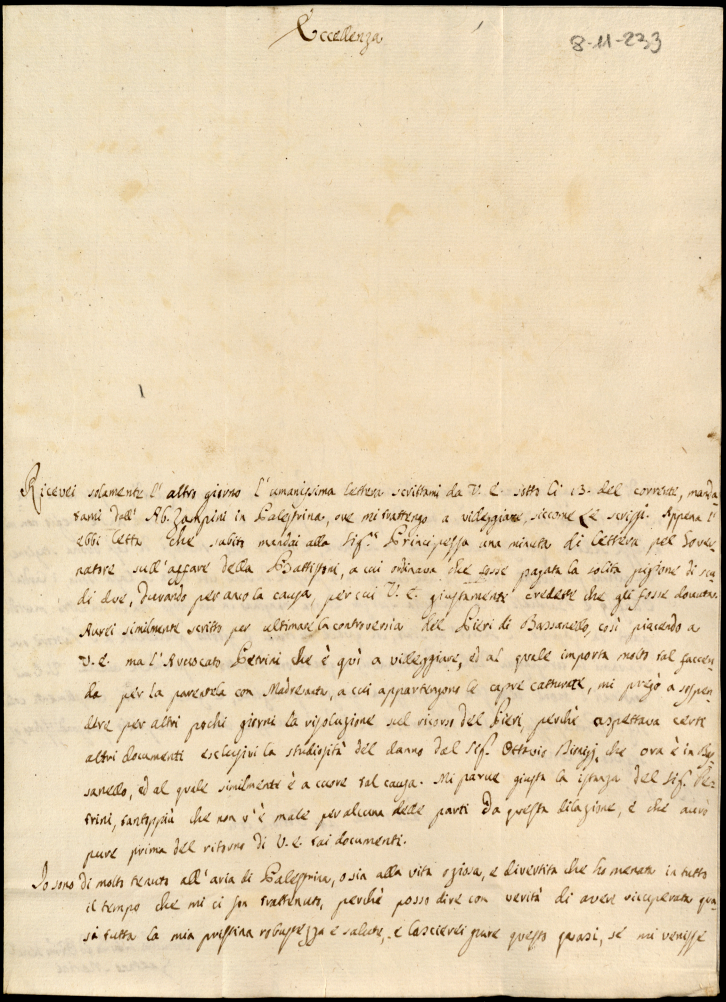 Eccellenza
8-11-233
Ricevei solamente l'altro giorno l'umanissima lettera scrittami da V. E. sotto li 13. del corrente, manda
tami dall' Ab. Zampini in Palestrina, ove mi trattengo a villeggiare, siccome Le scrissi. Appena l'
ebbi letta che subito mandai alla Sig.ra Principessa una minuta di lettera pel Gover
natore sull'affare della Battistoni, a cui ordinava che fosse pagata la solita pigione di scu
di due, durando per anco la causa, per cui V. E. giustamente credette che gli fosse dovuta.
Avrei similmente scritto per ultimare la controversia del Pieri di Bassanello, così piacendo a
V. E. ma l'Avvocato Petrini che è quì a villeggiare, ed al quale importa molto tal faccen
da per la parentela con Madreauta, a cui appartengono le capre catturate, mi pregò a sospen
dere per altri pochi giorni la risoluzione sul ricorso del Pieri, perchè aspettava certi
altri documenti esclusivi la studiosità del danno dal Sig. Ottavio che ora è in Bas
sanello, ed al quale similmente è a cuore tal causa. Mi parve giusta la istanza del Sig. Pe
trini, tantoppiù che non v'è male per alcuna delle parti da questa dilazione, e che avrò
pure prima del ritorno di V. E. tai documenti.
Io sono di molto tenuto all'aria di Palestrina, o sia alla vita oziosa, e divertita che ho menata in tutto
il tempo che mi ci son trattenuto, perchè posso dire con verità di avere ricuperata qua
si tutta la mia pristina robustezza e salute, e lascierei pure questo quasi, se mi venisse